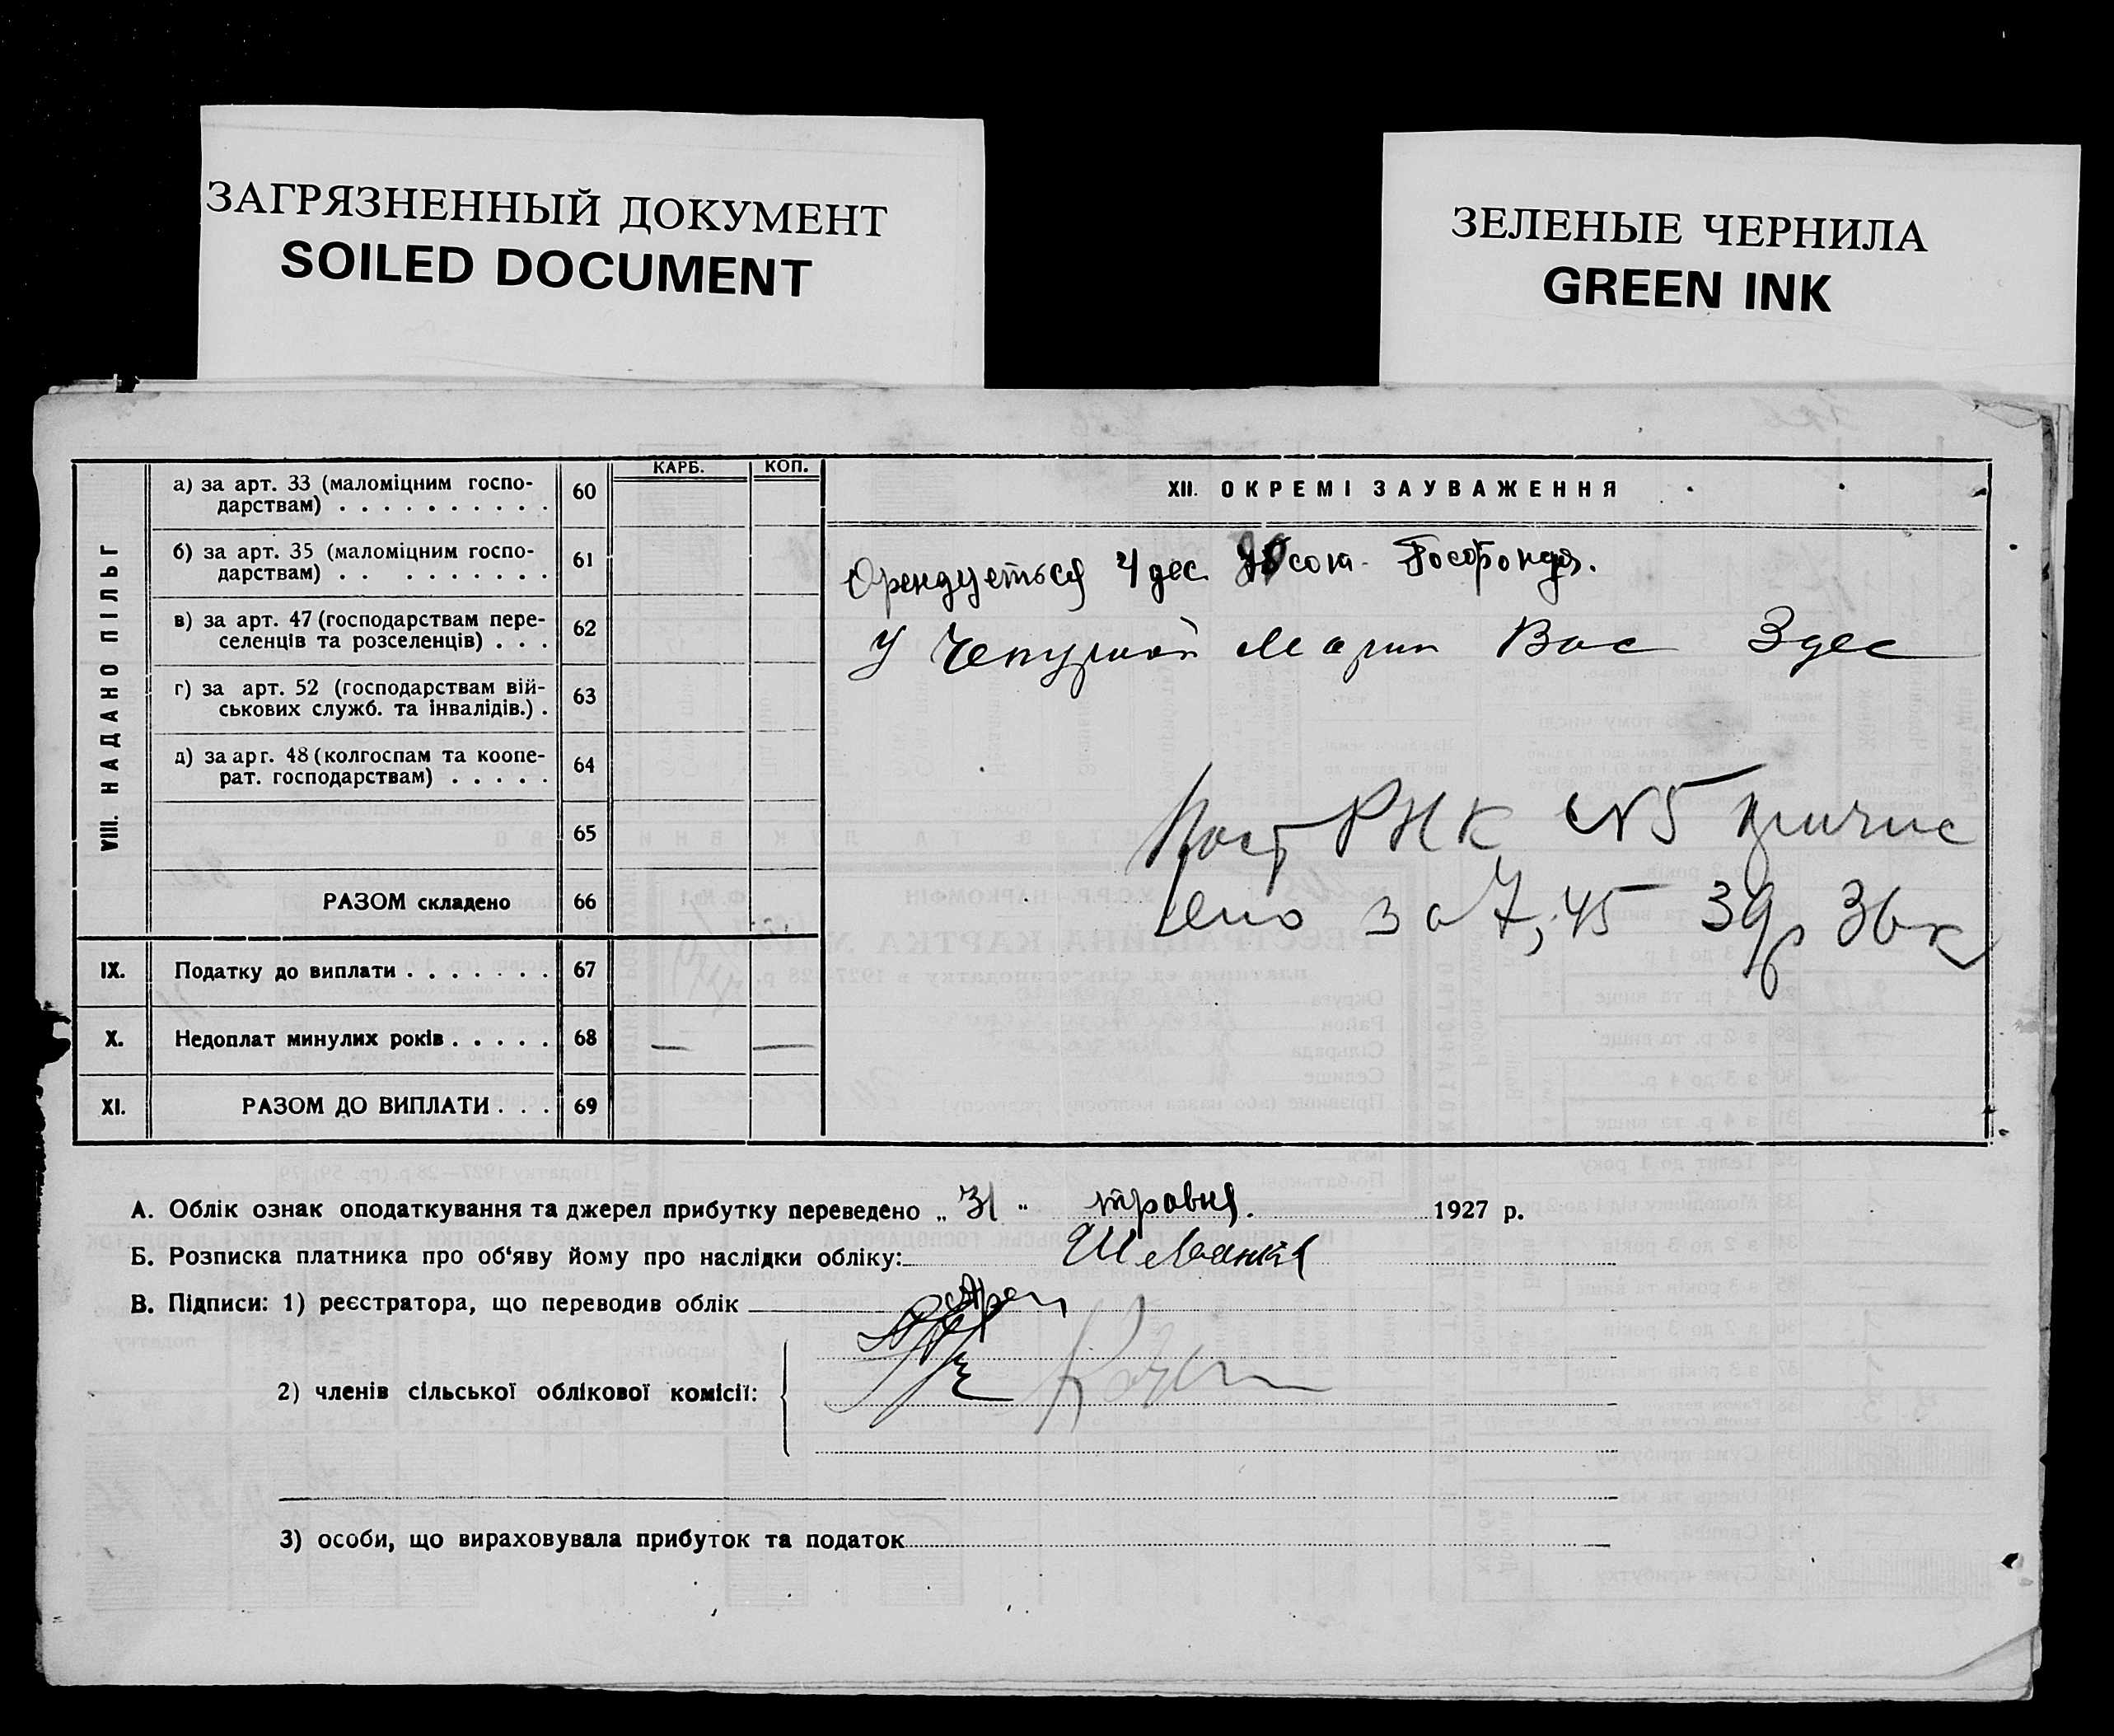 ЗАГРЯЗНЕННЫЙ ДОКУМЕНТ
SOILED DOCUMENT
ЗЕЛЕНЫЕ ЧЕРНИЛА
GREEN INK
VIII. НАДАНО ПІЛЬГ
КАРБ. КОП.
а) за арт. 33 (маломіцним госпо-
дарствам) . . . . . . . . . . 60
б) за арт. 35 (маломіцним госпо-
дарствам) . . . . . . . . . 61
в) за арт. 47 (господарствам пере-
селенців та розселенців) . . . 62
г) за арт. 52 (господарствам вій-
ськових служб. та інвалідів.) . 63
д) за арг. 48 (колгоспам та коопе-
рат. господарствам) . . . . . 64
65
РАЗОМ складено 66
IX. Податку до виплати . . . . . . . 67
X. Недоплат минулих років . . . . . 68 — —
XI. РАЗОМ ДО ВИПЛАТИ . . . 69
XII. ОКРЕМІ ЗАУВАЖЕННЯ
Орендується 4 дес. Госфондя.
У Марии Вас 3 дес
Пост РНК №5
45 36 к
А. Облік ознак оподаткування та джерел прибутку переведено „ 31 “ травня. 1927 р.
Б. Розписка платника про об‘яву йому про наслідки обліку:
В. Підписи: 1) реєстратора, що переводив облік
2) членів сільської облікової комісії:
3) особи, що вираховувала прибуток та податок